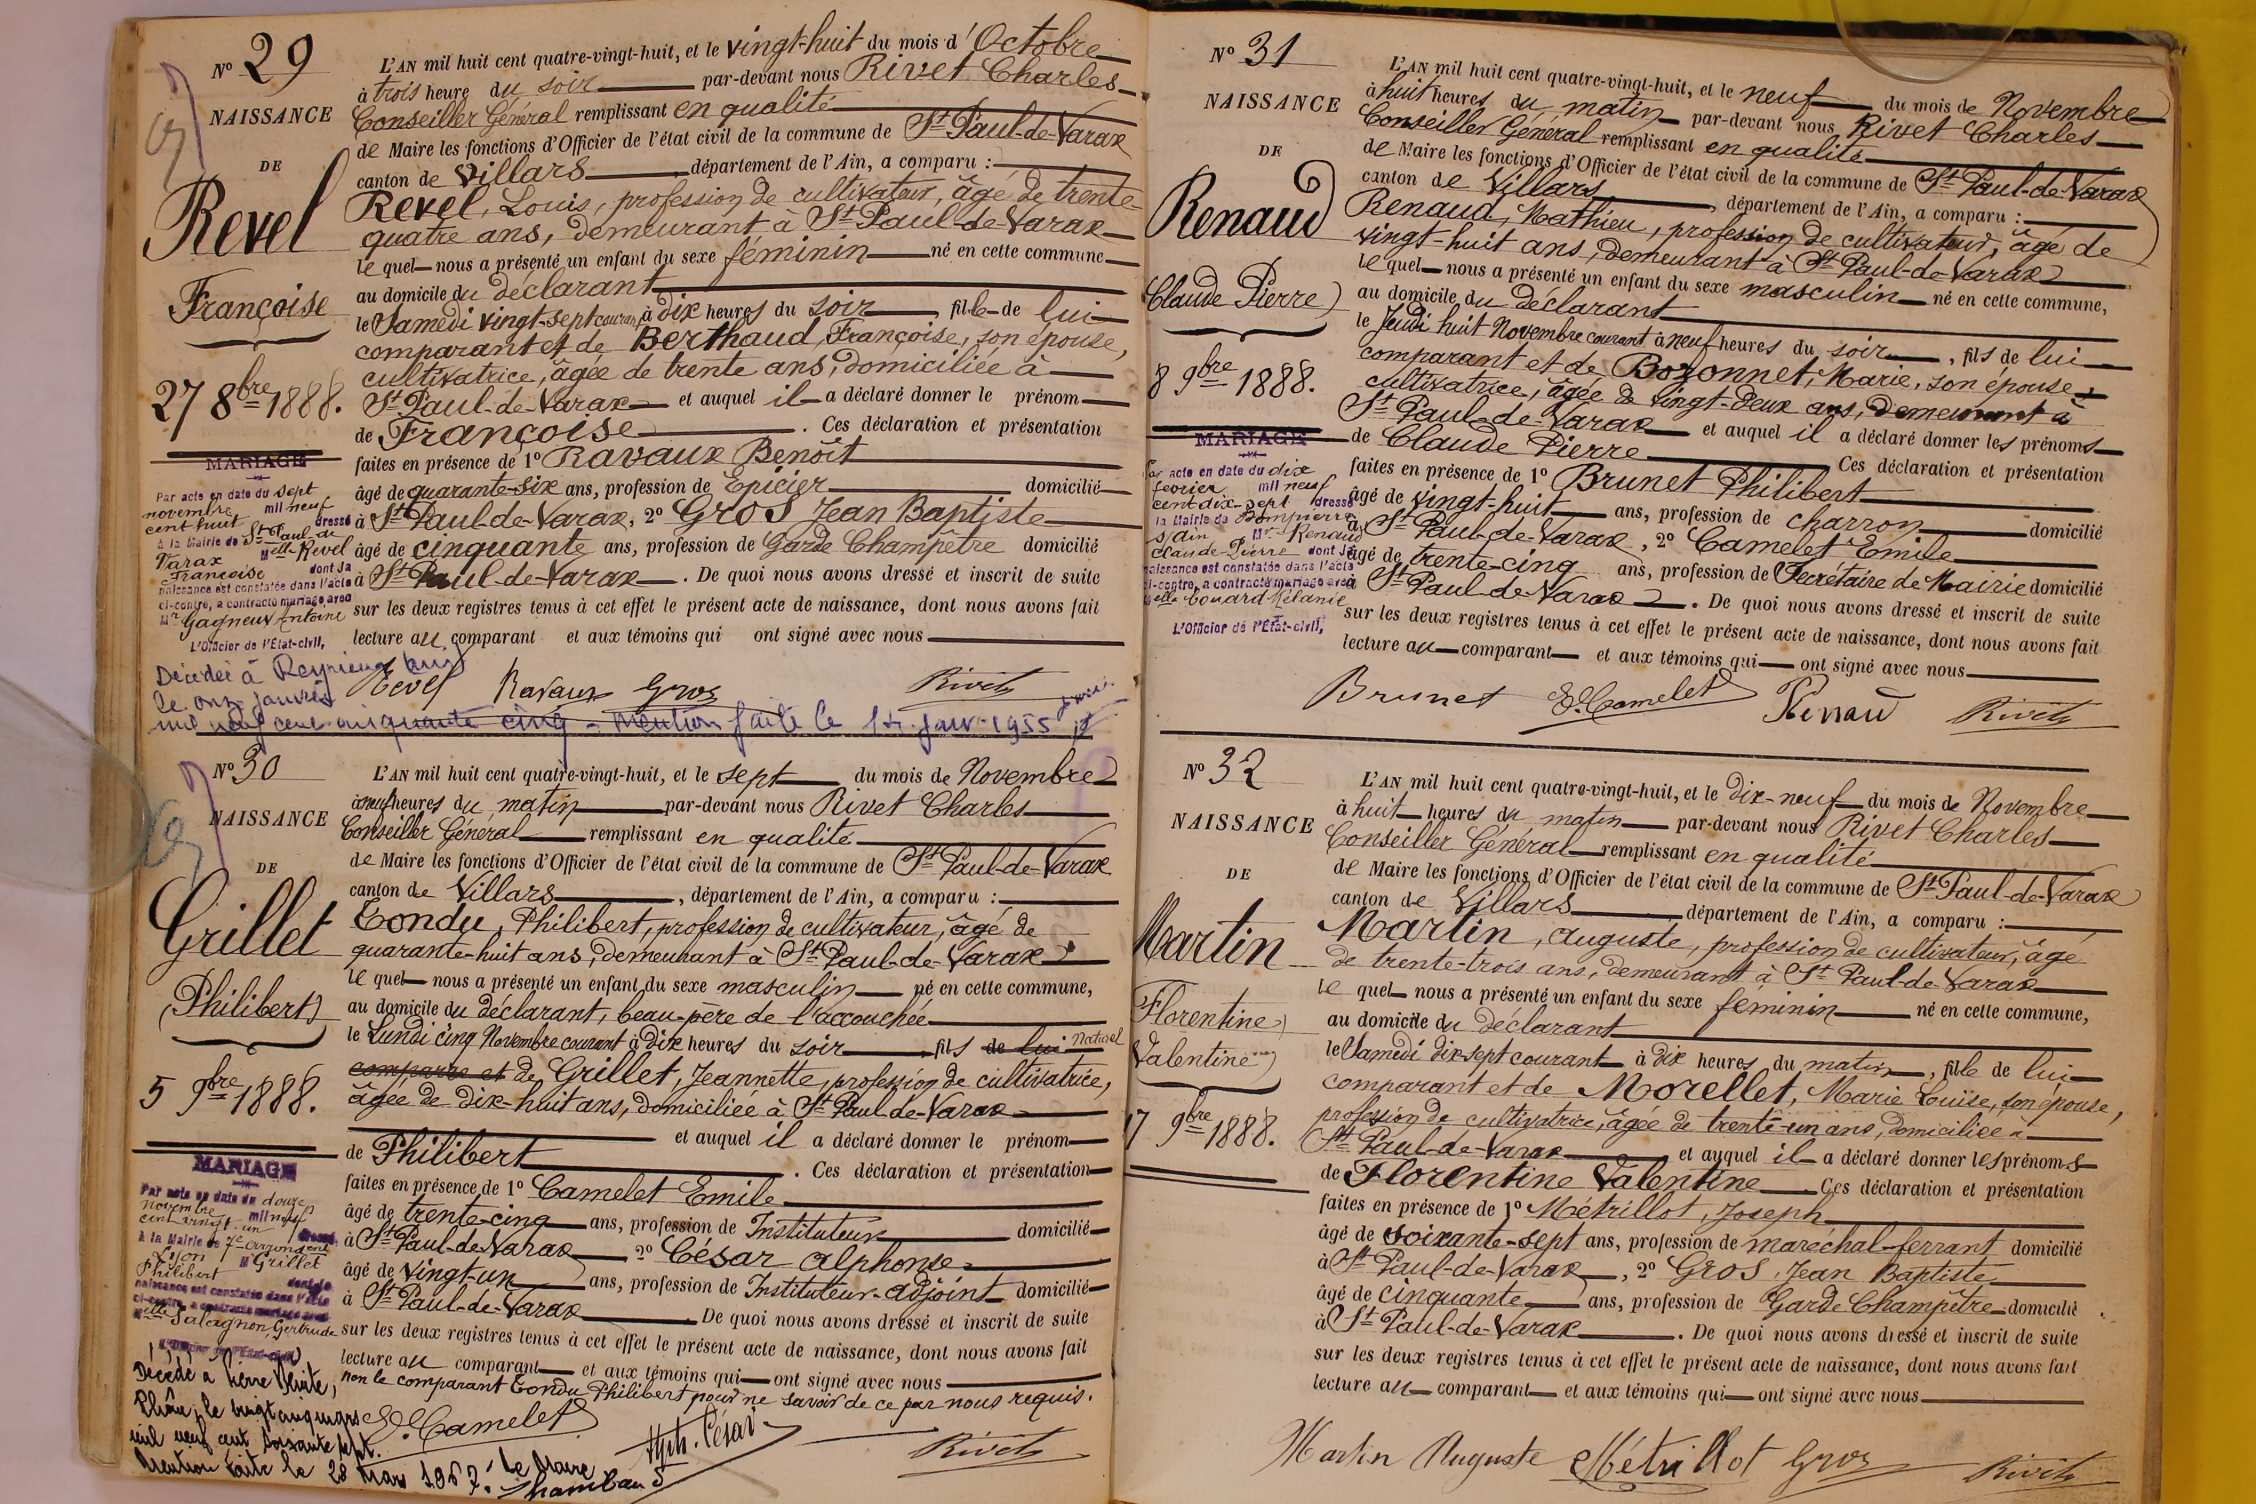 N° 29
NAISSANCE
DE
Revel
Françoise
27 8bre 1888.
MARIAGE
Par acte en date du sept
novembre mil neuf
cent huit dressé
à la Mairie de St Paul de
Varax Melle Revel
Françoise dont la
naissance est constatée dans l'acte
ci-contre, a contracté mariage avec
Mr Gagneux Antoine
L'Officier de l'Etat-civil,
Décédée à Reyrieux
le onze janvier
mil neuf cent cinquante cinq - Mention faite le 14 janv. 1955
L'AN mil huit cent quatre-vingt-huit, et le vingt-huit du mois d'Octobre
à trois heure du soir par-devant nous Rivet Charles
Conseiller Général remplissant en qualité
de Maire les fonctions d'Officier de l'état civil de la commune de St Paul-de-Varax
canton de Villars, département de l'Ain, a comparu :
Revel, Louis, profession de cultivateur, âgé de trente-
quatre ans, demeurant à St Paul-de-Varax
le quel nous a présenté un enfant du sexe féminin né en cette commune
au domicile du déclarant
le Samedi vingt-sept courant, à dix heures du soir, fille de lui
comparant et de Berthaud, Françoise, son épouse,
cultivatrice, âgée de trente ans, domiciliée à
St Paul-de-Varax et auquel il a déclaré donner le prénom
de Françoise. Ces déclaration et présentation
faites en présence de 1° Ravaux Benoît
âgé de quarante-six ans, profession de Epicier domicilié
à St Paul-de-Varax, 2° Gros Jean Baptiste
âgé de cinquante ans, profession de Garde Champêtre domicilié
à St Paul-de-Varax. De quoi nous avons dressé et inscrit de suite
sur les deux registres tenus à cet effet le présent acte de naissance, dont nous avons fait
lecture au comparant et aux témoins qui ont signé avec nous
Revel Ravaux Gros Rivet
N° 30
NAISSANCE
DE
Grillet
(Philibert)
5 9bre 1888.
MARIAGE
Par acte en date du douze
Novembre mil neuf
cent vingt-un dressé
à la Mairie de 7e arrondt
Lyon M Grillet
Philibert dont la
naissance est constatée dans l'acte
ci-contre, a contracté mariage avec
Melle Salagnon, Gertrude
L'Officier de l'Etat-civil,
Décédé à Pierre Bénite,
Rhône, le vingt cinq mars
mil neuf cent soixante sept.
Mention faite le 28 Mars 1967. Le Maire
L'AN mil huit cent quatre-vingt-huit, et le sept du mois de Novembre
à neuf heures du matin par-devant nous Rivet Charles
Conseiller Général remplissant en qualité
de Maire les fonctions d'Officier de l'état civil de la commune de St Paul-de-Varax
canton de Villars, département de l'Ain, a comparu :
Tondu, Philibert, profession de cultivateur, âgé de
quarante-huit ans, demeurant à St Paul-de-Varax
le quel nous a présenté un enfant du sexe masculin né en cette commune,
au domicile du déclarant, beau-père de l'accouchée
le Lundi cinq Novembre courant à dix heures du soir, fils de lui Naturel
comparre et de Grillet, Jeannette, profession de cultivatrice,
âgée de dix-huit ans, domiciliée à St Paul-de-Varax
et auquel il a déclaré donner le prénom
de Philibert. Ces déclaration et présentation
faites en présence de 1° Camelet Emile
âgé de trente-cinq ans, profession de Instituteur domicilié
à St Paul-de-Varax 2° César Alphonse
âgé de vingt-un ans, profession de Instituteur-adjoint domicilié
à St Paul-de-Varax. De quoi nous avons dressé et inscrit de suite
sur les deux registres tenus à cet effet le présent acte de naissance, dont nous avons fait
lecture au comparant et aux témoins qui ont signé avec nous
non le comparant Tondu Philibert pour ne savoir de ce par nous requis.
E. Camelet Alph. César Rivet
N° 31
NAISSANCE
DE
Renaud
(Claude Pierre)
8 9bre 1888.
MARIAGE
Par acte en date du dix
février mil neuf
cent dix-sept dressé
à la Mairie de Dompierre
s/ Ain Mr Renaud
Claude-Pierre dont la
naissance est constatée dans l'acte
ci-contre, a contracté mariage avec
Melle Couard Mélanie
L'Officier de l'Etat-civil,
L'AN mil huit cent quatre-vingt-huit, et le neuf du mois de Novembre
à huit heures du matin par-devant nous Rivet Charles
Conseiller Général remplissant en qualité
de Maire les fonctions d'Officier de l'état civil de la commune de St Paul-de-Varax
canton de Villars, département de l'Ain, a comparu :
Renaud, Mathieu, profession de cultivateur, âgé de
vingt-huit ans, demeurant à St Paul-de-Varax
le quel nous a présenté un enfant du sexe masculin né en cette commune,
au domicile du déclarant
le Jeudi huit Novembre courant à neuf heures du soir, fils de lui
comparant et de Bozonnet, Marie, son épouse,
cultivatrice, âgée de vingt-deux ans, demeurant à
St Paul-de-Varax et auquel il a déclaré donner les prénoms
de Claude Pierre Ces déclaration et présentation
faites en présence de 1° Brunet Philibert
âgé de vingt-huit ans, profession de charron domicilié
à St Paul-de-Varax, 2° Camelet Emile
âgé de trente-cinq ans, profession de Secrétaire de Mairie domicilié
à St Paul-de-Varax. De quoi nous avons dressé et inscrit de suite
sur les deux registres tenus à cet effet le présent acte de naissance, dont nous avons fait
lecture au comparant et aux témoins qui ont signé avec nous
Brunet E. Camelet Renaud Rivet
N° 32
NAISSANCE
DE
Martin
Florentine
Valentine
17 9bre 1888.
L'AN mil huit cent quatre-vingt-huit, et le dix-neuf du mois de Novembre
à huit heures du matin par-devant nous Rivet Charles
Conseiller Général remplissant en qualité
de Maire les fonctions d'Officier de l'état civil de la commune de St Paul-de-Varax
canton de Villars, département de l'Ain, a comparu :
Martin, Auguste, profession de cultivateur, âgé
de trente-trois ans, demeurant à St Paul-de-Varax
le quel nous a présenté un enfant du sexe féminin né en cette commune,
au domicile du déclarant
le Samedi dix-sept courant à dix heures du matin, fille de lui
comparant et de Morellet, Marie Louise, son épouse,
profession de cultivatrice, âgée de trente-un ans, domiciliée à
St Paul-de-Varax et auquel il a déclaré donner les prénoms
de Florentine Valentine Ces déclaration et présentation
faites en présence de 1° Métrillot, Joseph
âgé de soixante-sept ans, profession de maréchal-ferrant domicilié
à St Paul-de-Varax, 2° Gros, Jean Baptiste
âgé de cinquante ans, profession de Garde Champêtre domicilié
à St Paul-de-Varax. De quoi nous avons dressé et inscrit de suite
sur les deux registres tenus à cet effet le présent acte de naissance, dont nous avons fait
lecture au comparant et aux témoins qui ont signé avec nous
Martin Auguste Métrillot Gros Rivet